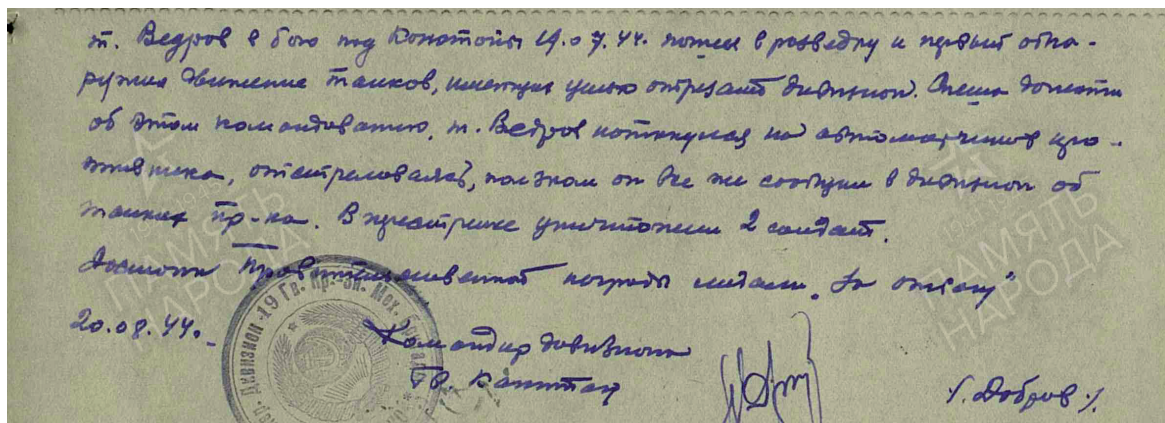 т. Ведров в бою под Конотопы 19.07.44. пошел в розведку и первый обна-
ружил движение танков, имеющих целью отрезать дивизион. Спеша донести
об этом командованию, т. Ведров натолкнулся на автоматчиков про-
тивника, отстреливаясь, ползком он все же сообщил в дивизион об
танках пр-ка. В перестрелке уничтожил 2 солдат.
Достоин правительственной награды медали "За отвагу"
20.08.44.
Командир дивизиона
Гв. Капитан
/. Добров /.
Дивизион 19 Гв. Мех.
ПАМЯТЬ
НАРОДА
ПАМЯТЬ
НАРОДА